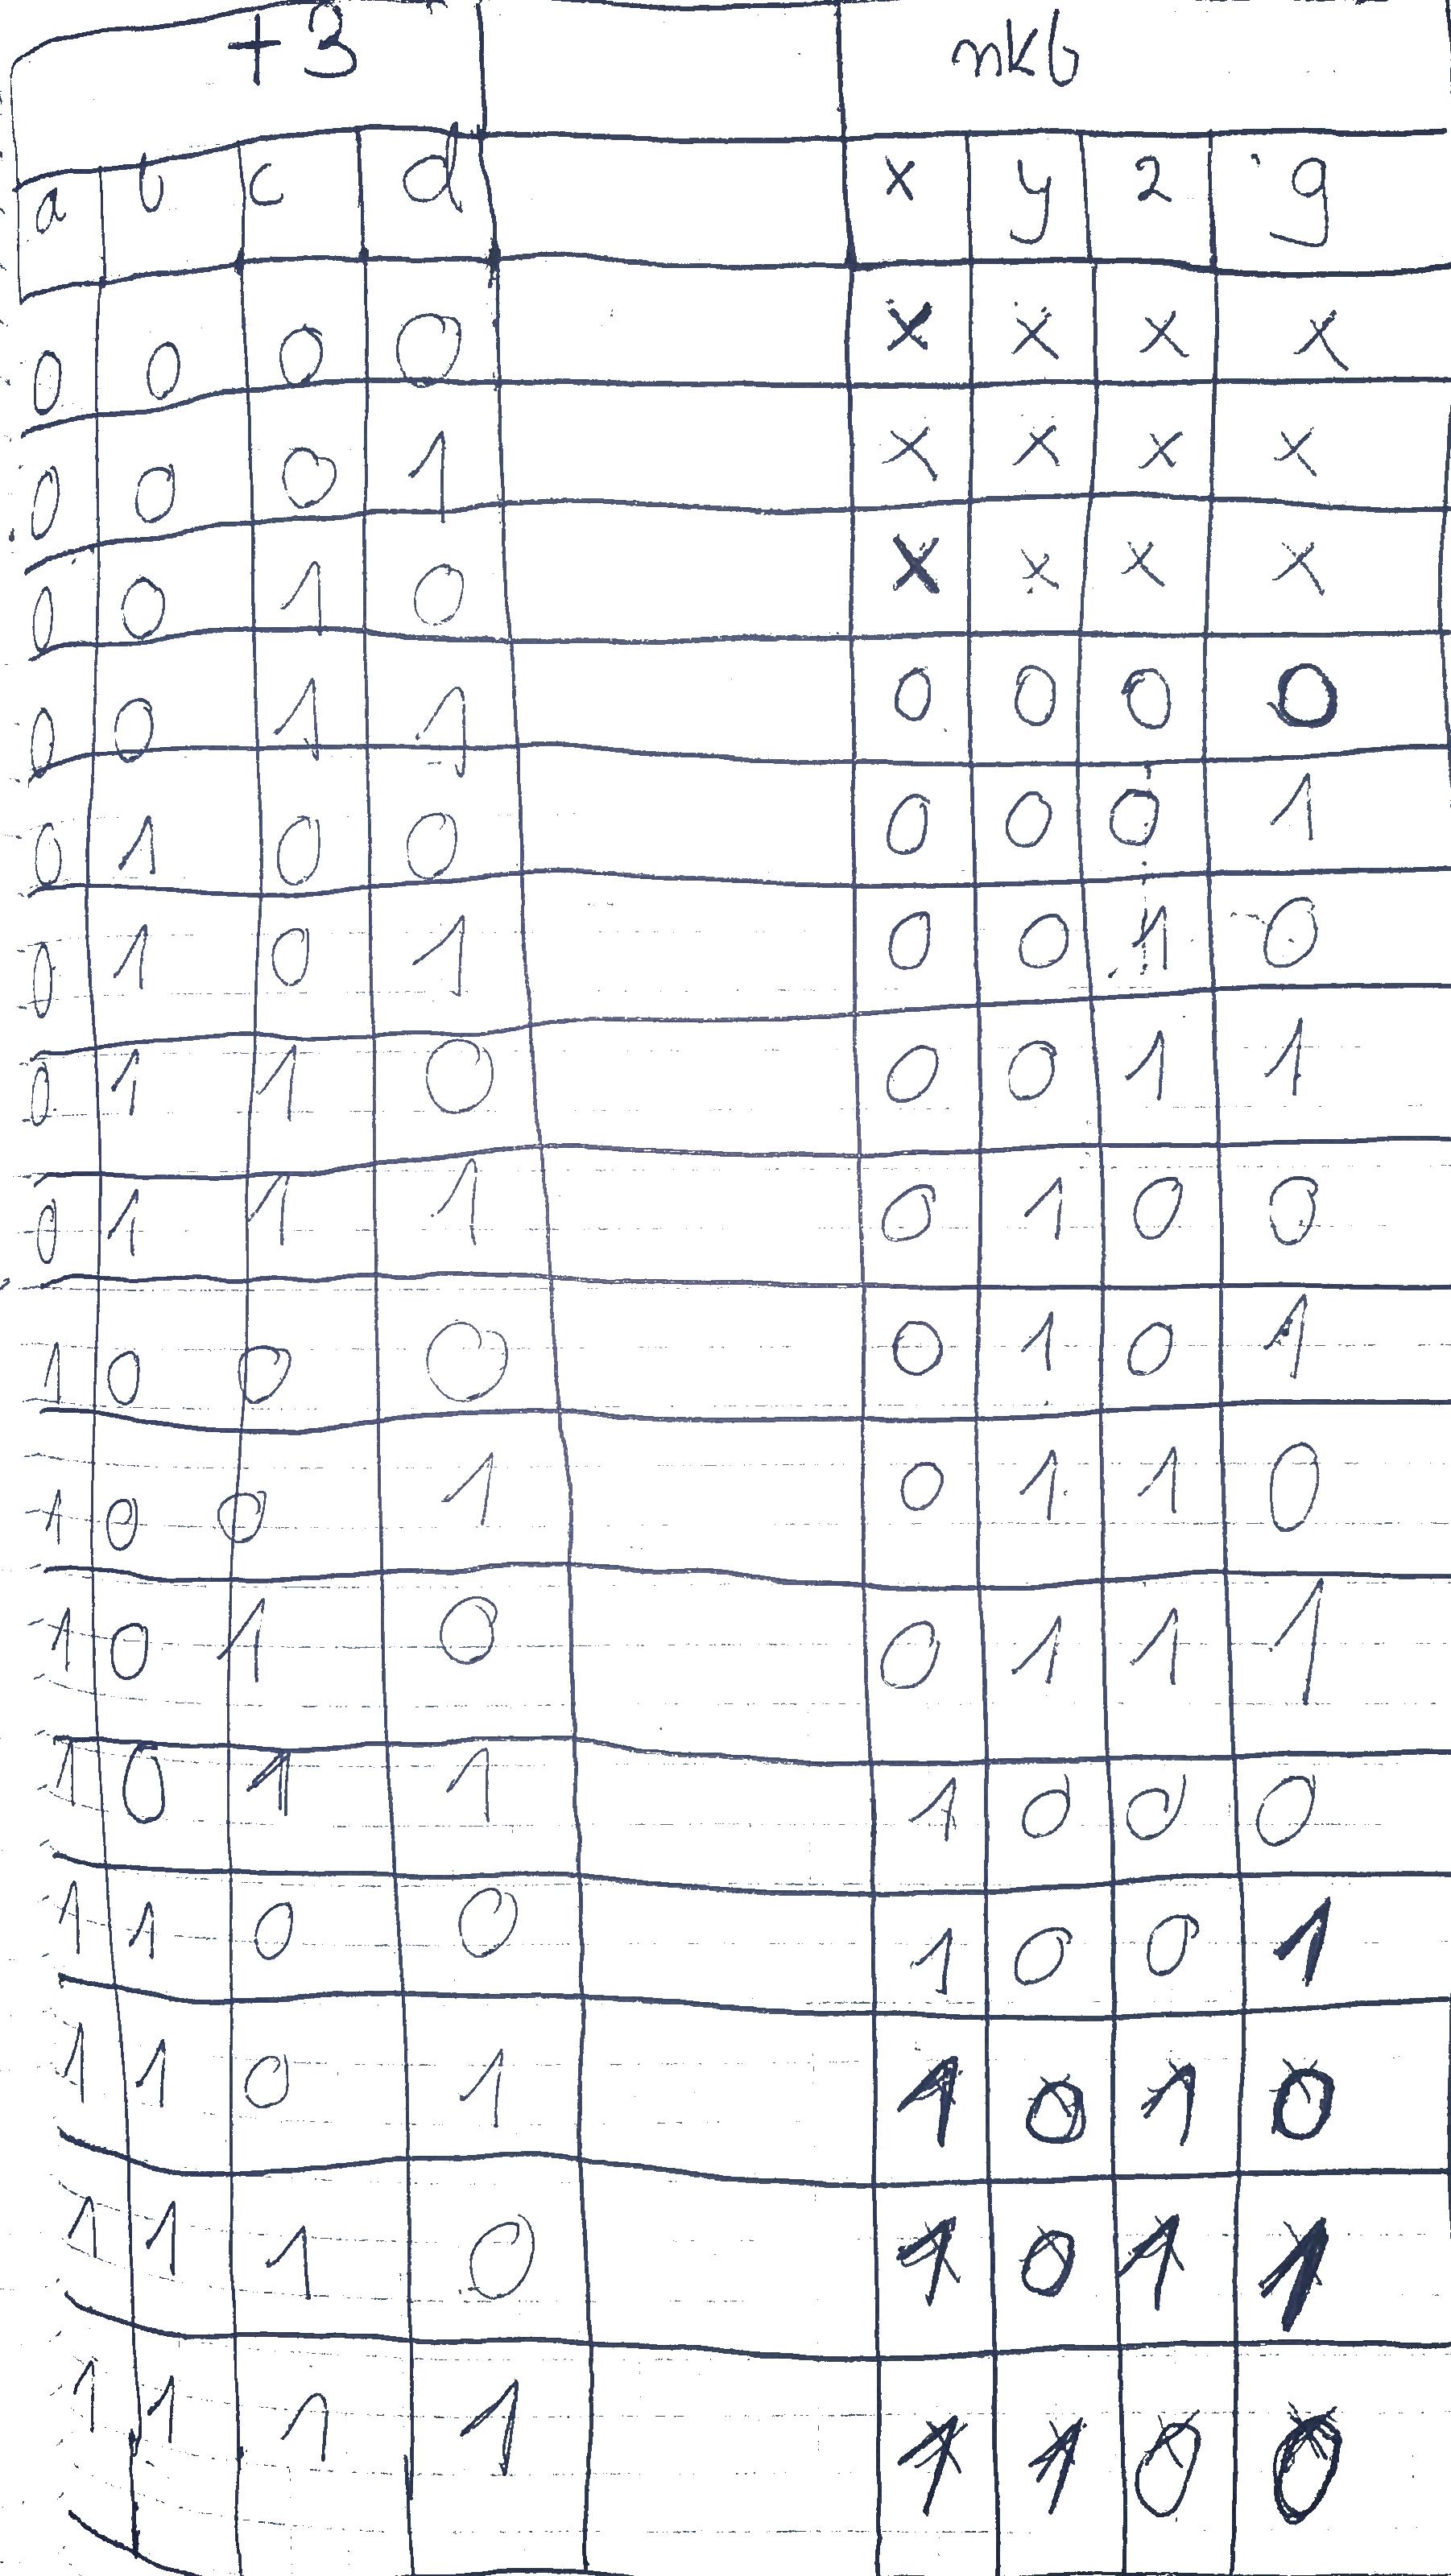 +3 nkb
a b c d x y z g
0 0 0 0 x x x x
0 0 0 1 x x x x
0 0 1 0 x x x x
0 0 1 1 0 0 0 0
0 1 0 0 0 0 0 1
0 1 0 1 0 0 1 0
0 1 1 0 0 0 1 1
0 1 1 1 0 1 0 0
1 0 0 0 0 1 0 1
1 0 0 1 0 1 1 0
1 0 1 0 0 1 1 1
1 0 1 1 1 0 0 0
1 1 0 0 1 0 0 1
1 1 0 1 1 0 1 0
1 1 1 0 1 0 1 1
1 1 1 1 1 1 0 0